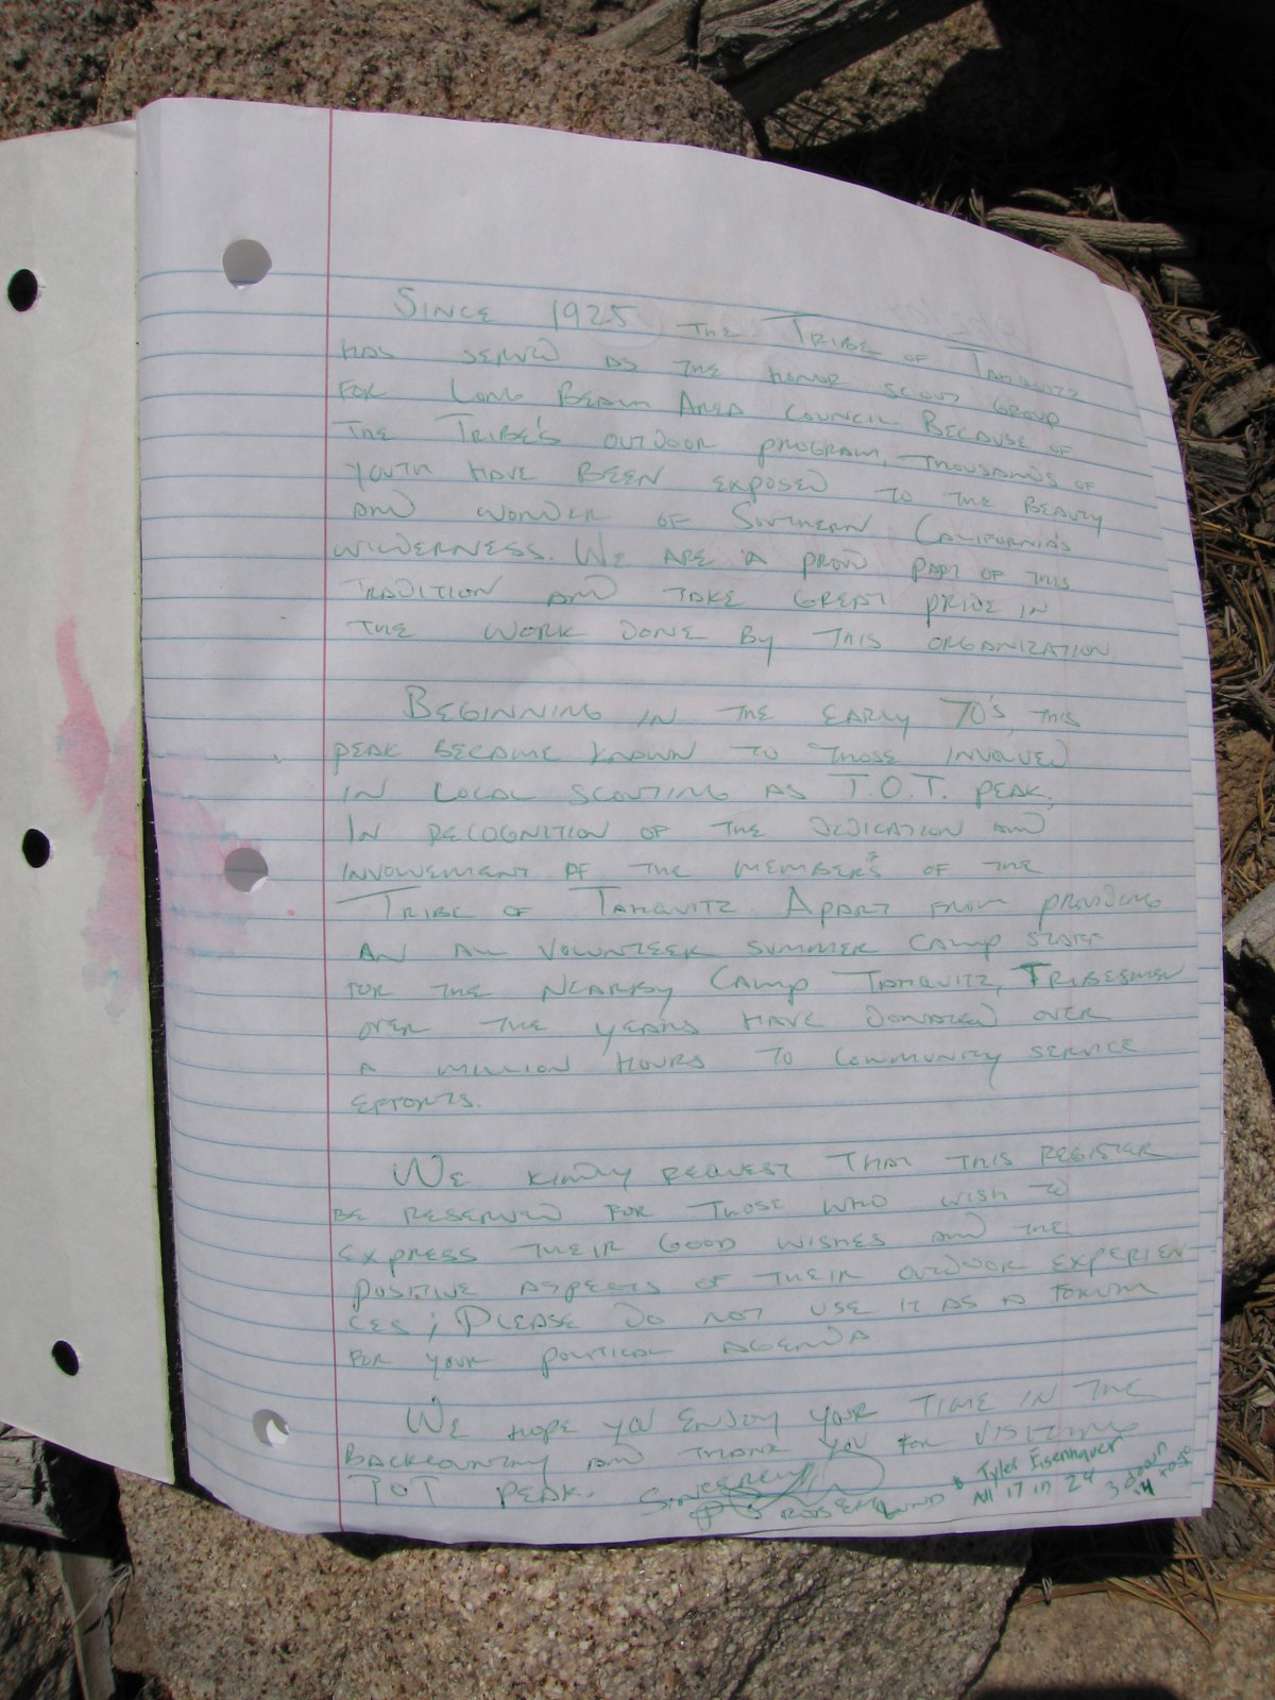 SINCE 1925 THE TRIBE OF TAHQUITZ
HAS SERVED AS THE HONOR SCOUT GROUP
FOR LONG BEACH AREA COUNCIL. BECAUSE OF
THE TRIBE'S OUTDOOR PROGRAM, THOUSANDS OF
YOUTH HAVE BEEN EXPOSED TO THE BEAUTY
AND WONDER OF SOUTHERN CALIFORNIA'S
WILDERNESS. WE ARE A PROUD PART OF THIS
TRADITION AND TAKE GREAT PRIDE IN
THE WORK DONE BY THIS ORGANIZATION
BEGINNING IN THE EARLY 70'S, THIS
PEAK BECAME KNOWN TO THOSE INVOLVED
IN LOCAL SCOUTING AS T.O.T. PEAK.
IN RECOGNITION OF THE DEDICATION AND
INVOLVEMENT OF THE MEMBERS OF THE
TRIBE OF TAHQUITZ. APART FROM PROVIDING
AN ALL VOLUNTEER SUMMER CAMP STAFF
FOR THE NEARBY CAMP TAHQUITZ, TRIBESMEN
OVER THE YEARS HAVE DONATED OVER
A MILLION HOURS TO COMMUNITY SERVICE
EFFORTS.
WE KINDLY REQUEST THAT THIS REGISTER
BE RESERVED FOR THOSE WHO WISH TO
EXPRESS THEIR GOOD WISHES AND THE
POSITIVE ASPECTS OF THEIR OUTDOOR EXPERIEN
CES; PLEASE DO NOT USE IT AS A FORUM
FOR YOUR POLITICAL AGENDA
WE HOPE YOU ENJOY YOUR TIME IN THE
BACKCOUNTRY AND THANK YOU FOR VISITING
TOT PEAK. SINCERELY
& Tyler Eisenhauer
All 17 in 24 3 down